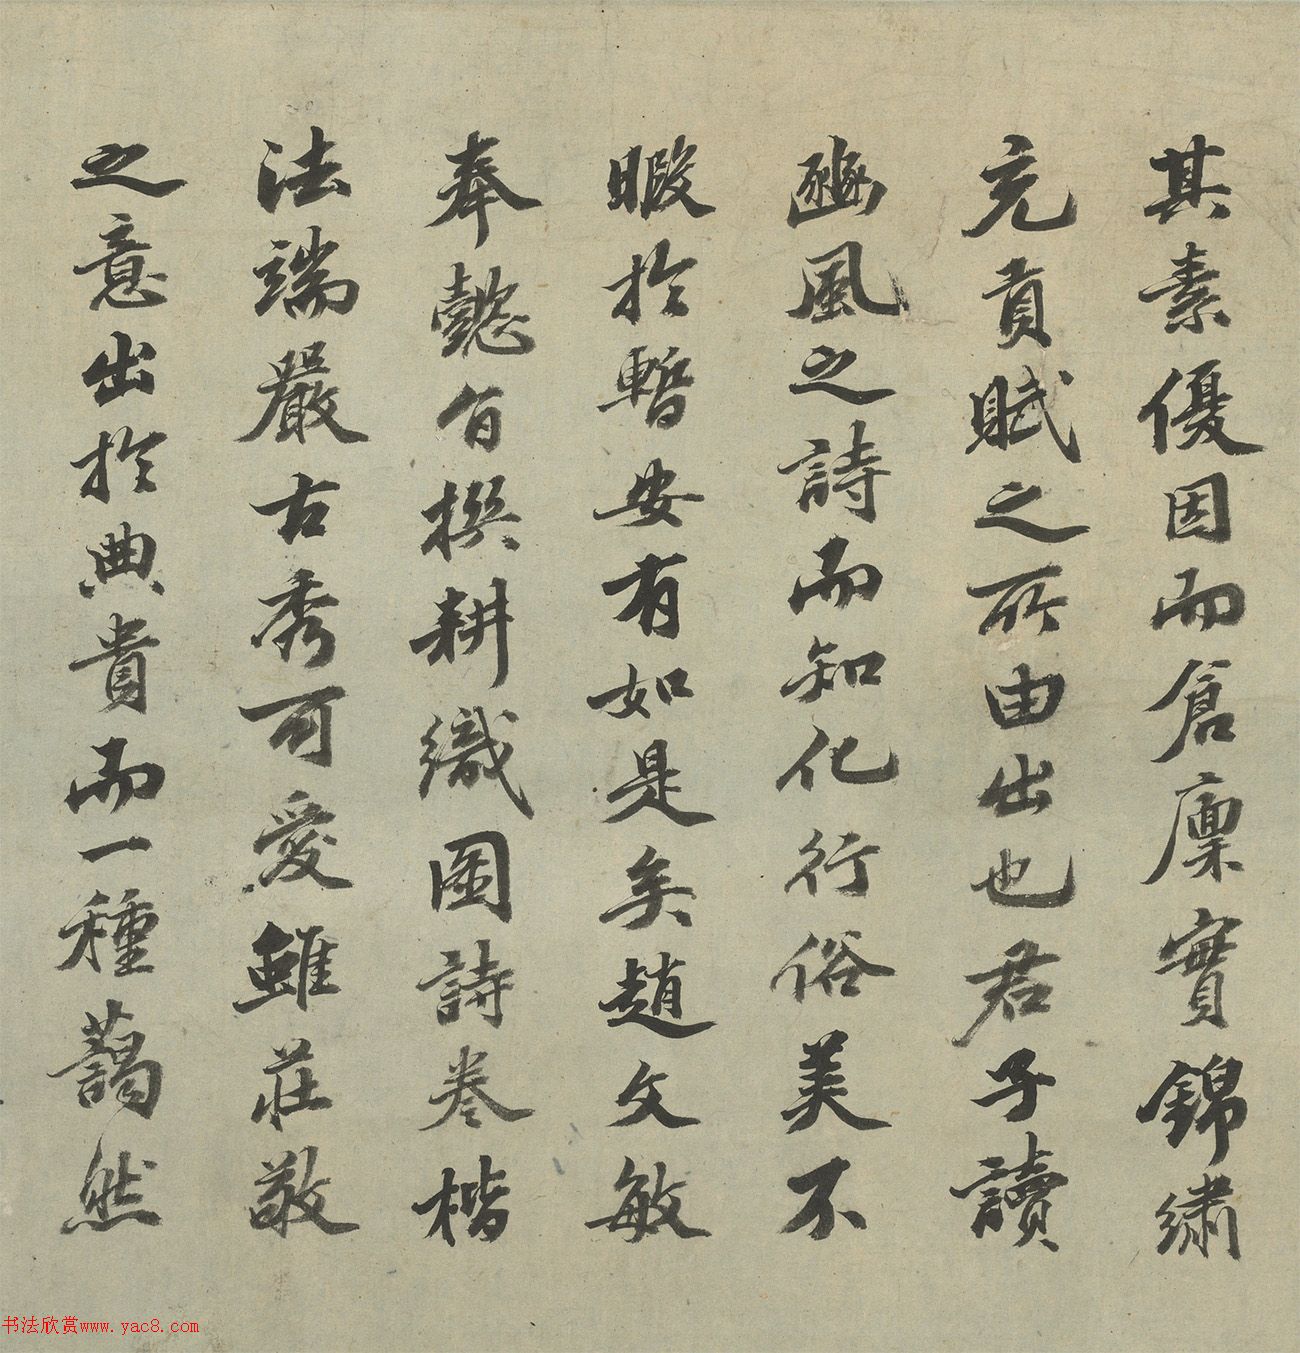 其素優因而倉廩實錦繡
充貢賦之所由出也君子讀
豳風之詩而知化行俗美不
暇於蹔安有如是矣趙文敏
奉懿旨撰耕織圖詩卷楷
法端嚴古秀可愛雖莊敬
之意出於典貴而一種藹然
书法欣赏www.yac8.com